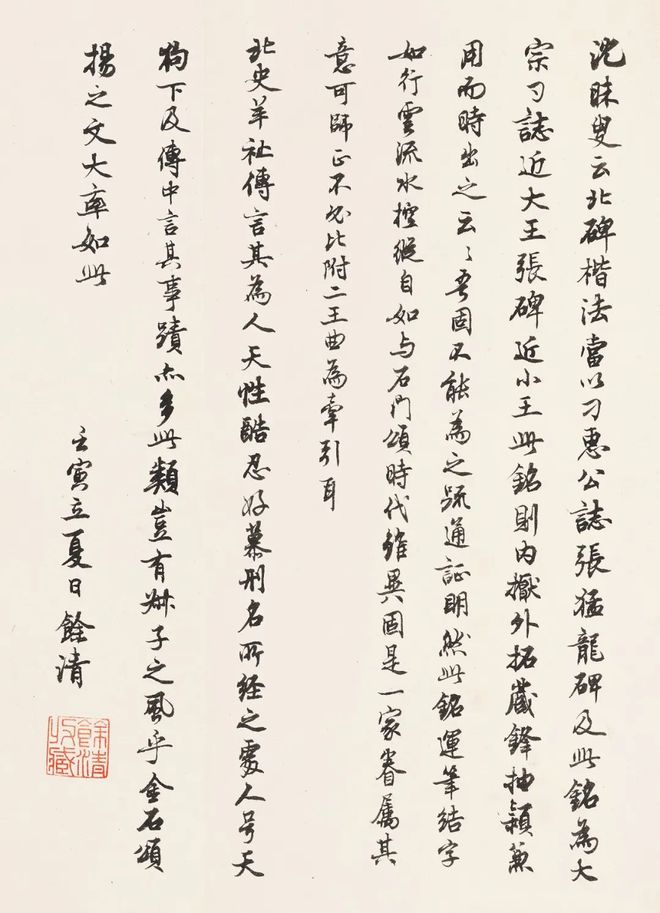 沈昧叟云北碑楷法當以刁惠公誌張猛龍碑及此銘為大
宗刁誌近大王張碑近小王此銘則內擫外拓藏鋒抽穎兼
用而時出之云〻吾固不能為之疏通証明然此銘運筆結字
如行雲流水控縱自如与石門頌時代雖異固是一家眷屬其
意可師正不必比附二王曲為牽引耳
北史羊祉傳言其為人天性酷忍好慕刑名所經之處人号天
狗下及傳中言其事蹟亦多此類豈有叔子之風乎金石頌
揚之文大率如此
壬寅立夏日餘清
餘清收藏